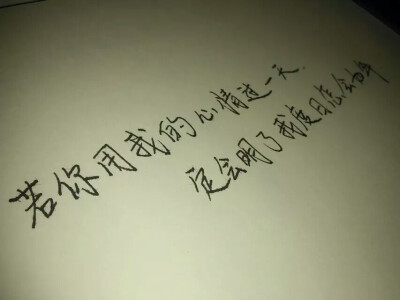 若你用我的心情过一天.
定会明了我度日怎会如年